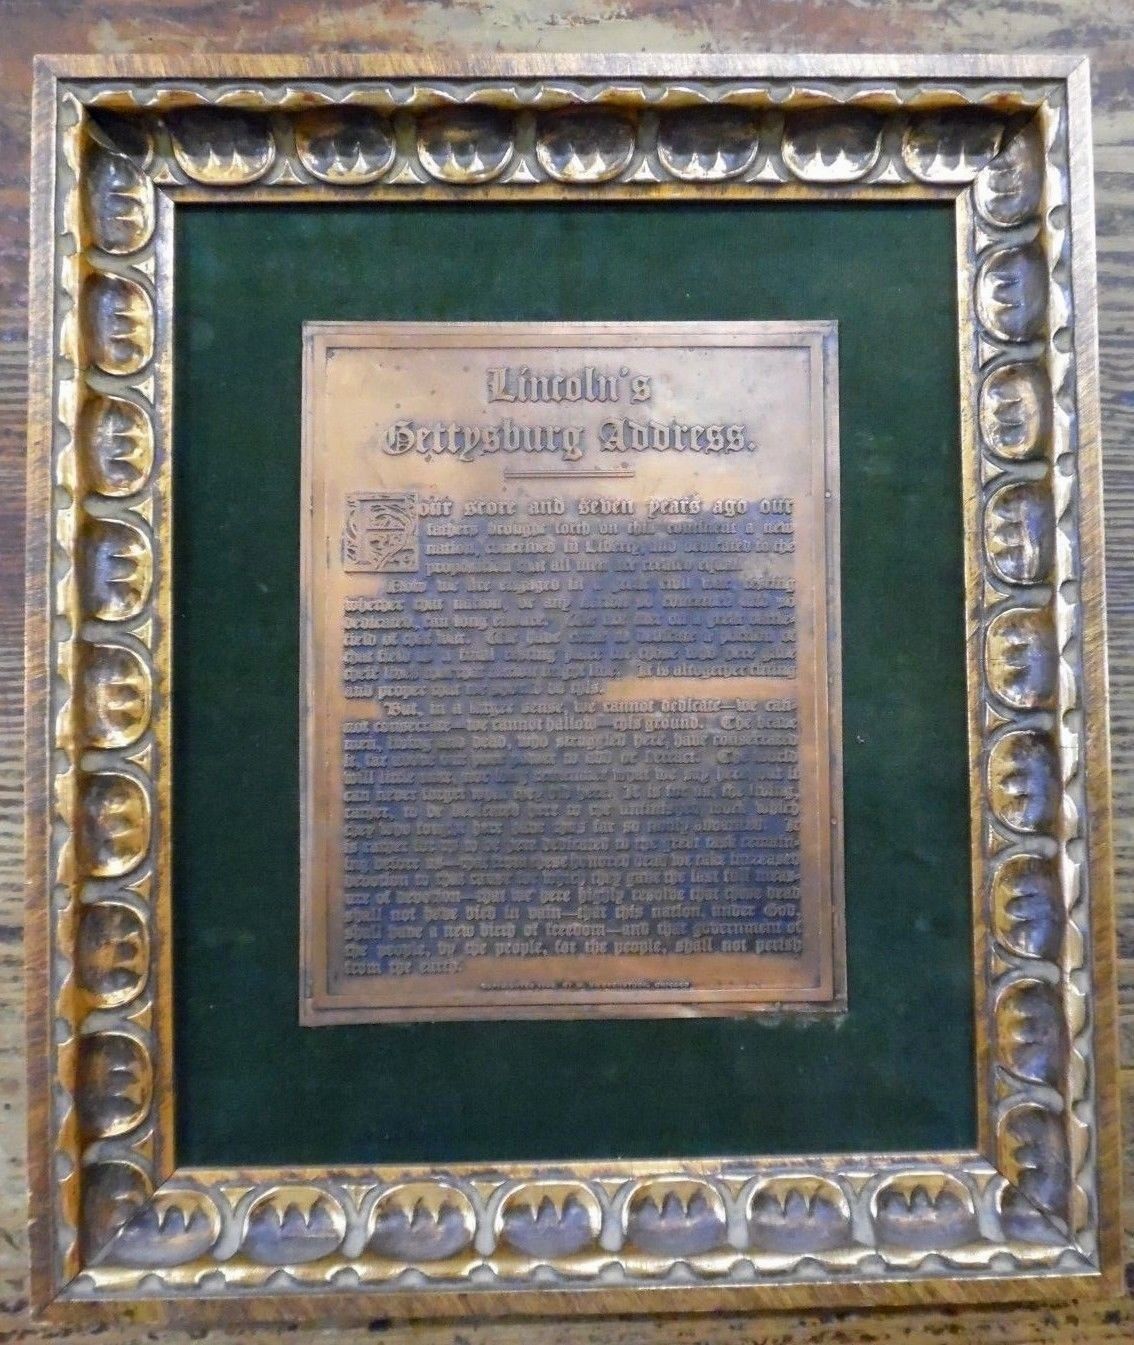 Lincoln's
Gettysburg Address.
Four score and seven years ago our
fathers brought forth on this continent a new
nation, conceived in Liberty, and dedicated to the
proposition that all men are created equal.
Now we are engaged in a great civil war, testing
whether that nation, or any nation so conceived and so
dedicated, can long endure. We are met on a great battle-
field of that war. We have come to dedicate a portion of
that field as a final resting place for those who here gave
their lives that that nation might live. It is altogether fitting
and proper that we should do this.
But, in a larger sense, we cannot dedicate—we can-
not consecrate—we cannot hallow—this ground. The brave
men, living and dead, who struggled here, have consecrated
it far above our poor power to add or detract. The world
will little note, nor long remember what we say here, but it
can never forget what they did here. It is for us, the living,
rather, to be dedicated here to the unfinished work which
they who fought here have thus far so nobly advanced. It
is rather for us to be here dedicated to the great task remain-
ing before us—that from these honored dead we take increased
devotion to that cause for which they gave the last full meas-
ure of devotion—that we here highly resolve that these dead
shall not have died in vain—that this nation, under God,
shall have a new birth of freedom—and that government of
the people, by the people, for the people, shall not perish
from the earth.